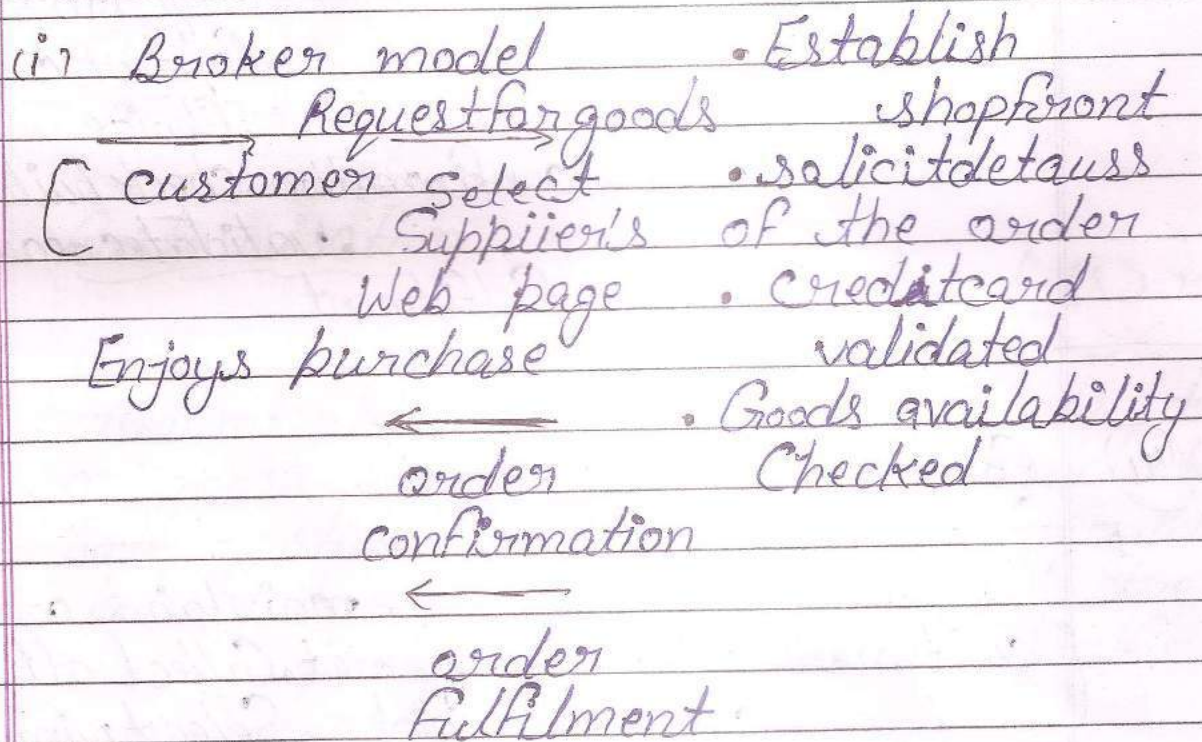 (i) Broker model • Establish
Request for goods shopfront
Customer Select • salicitdetauss
Suppiier's of the order
Web page • creditcard
Enjoys purchase validated
• Goods availability
order Checked
confirmation
order
fulfilment